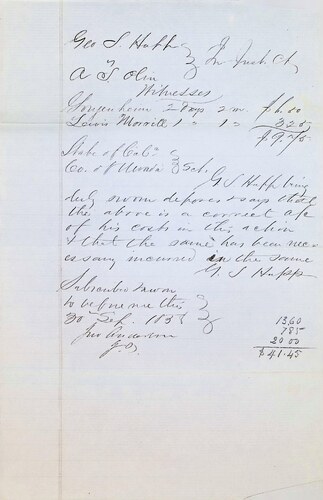 Geo S. Hupp }
vs } In Just Ct
A T. Olin }
Witnesses
2 days 2 m. $6.00
Lewis Morrill 1 " 1 " 3 20
$9.70
State of Cal }
Co. of Nevada } Sct.
G S Hupp being
duly sworn deposes & says that
the above is a correct a/c
of his costs in this action
& that the same has been nece
ssary incurred in the same
G. S Hupp
Subscribed & sworn
to before me this
30 Sep. 185
Jno Anderson
J.P.
13.60
7 85
20 00
$41.45